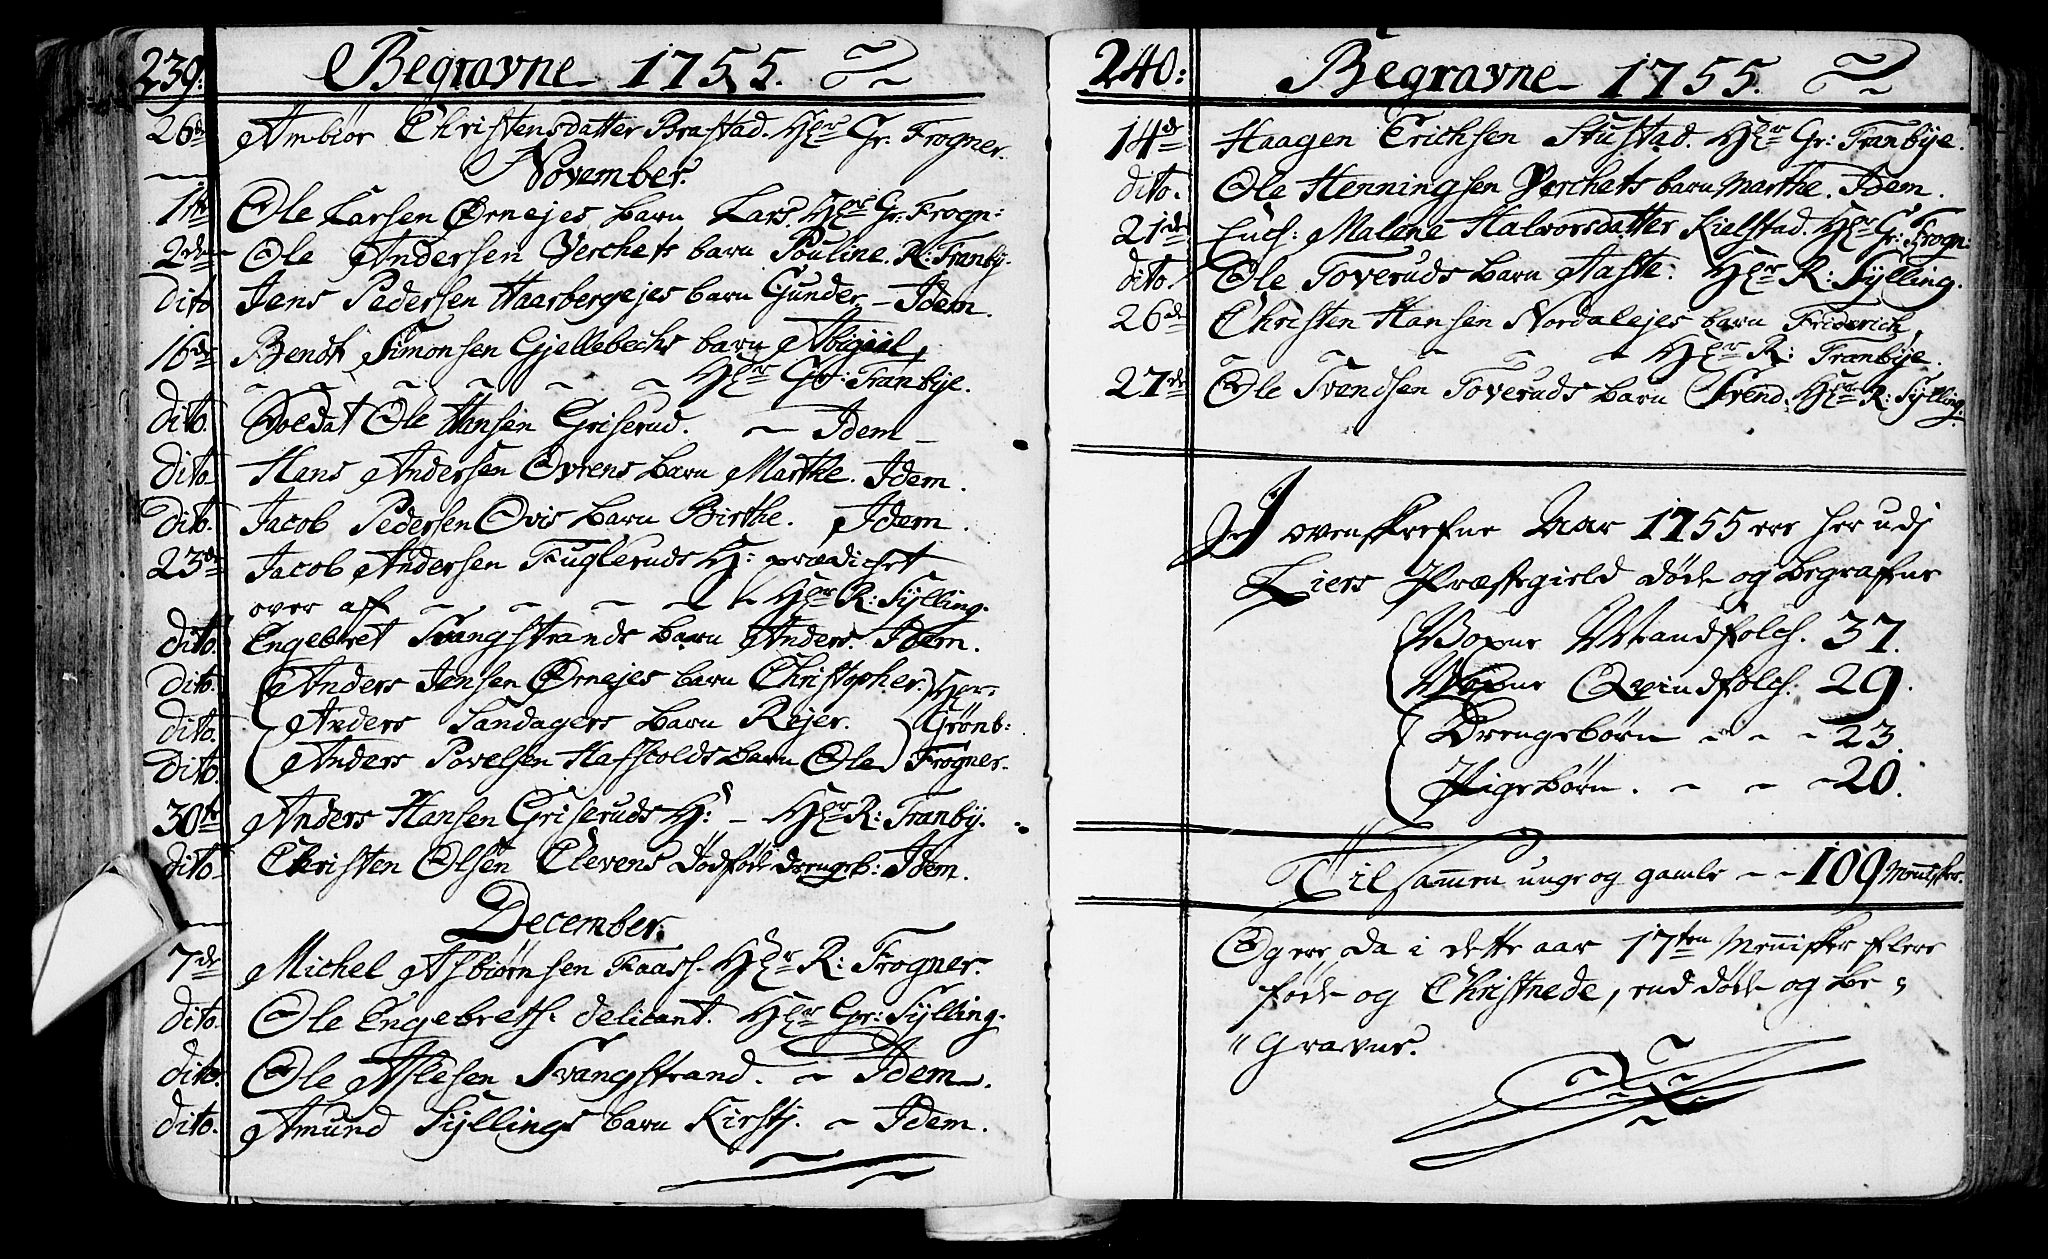 239:
Begravne 1755.
26de Ambiør Christensdatter Brastad. Hr Gr. Frogner.
November.
1te Ole Larsen Ørnejes barn Lars. Hr Gr: Frogn:
2de Ole Andersen Verchets barn Pouline. R: Tranby.
dito Jens Pedersen Haarbergejes barn Gunder. – Idem.
16de Bendt Simonsen Gjellebechs barn Abigail,
Hr Gr: Tranbye.
dito. Soldat Ole Hansen Griserud. – Idem
dito. Hans Andersen Ovrens barn Marthe. Idem.
dito. Jacob Pedersen Ovis barn Birthe. Idem.
23de Jacob Andersen Fugleruds H: prædichet
over af Hr R: Sylling.
dito. Engebret Svangstrands barn Anders. Idem.
dito. Anders Jensen Ørnejes barn Christopher. Her
dito. Anders Sandagers barn Rejer. Grønb:
dito. Anders Povelsen Hafsvolds barn Ole. Frogner.
30te Anders Hansen Griseruds H: – Hr R: Tranby.
dito. Christen Olsen Clevens dødfødde drengeb: Idem.
December.
7de Michel Asbiørnsen Faass. Hr R: Frogner.
dito. Ole Engebrets. delicant. Hr Gr: Sylling.
dito. Ole Aslesen Svangstrand. – Idem.
dito. Amund Syllings barn Kirstj. – Idem.
240:
Begravne 1755.
14de Haagen Erichsen Stustad. Hr Gr: Tranbye.
dito. Ole Henningsen Verchets barn Marthe. Idem.
21de Euch: Malene Halvorsdatter Kielstad. Hr Gr: Frogn:
dito. Ole Toveruds barn Aaste. Hr R: Sylling.
26de Christen Hansen Nordalejes barn Friderich,
Hr R: Tranbye.
27de Ole Svendsen Toveruds barn Svend. Hr R: Sylling.
J ovenskrefne Aar 1755 ere her udj
Liers Præstegield døde og begrafne
Voxne Mandfolch. 37.
Voxne Qvindfolch: 29.
Drengebørn – – – 23.
Pigebørn. – – – 20.
Tilsammen unge og gamle – – 109 Mennisker.
Og ere da i dette aar 17ten Mennisker flere
føde og Christnede, end døde og be=
"gravne.